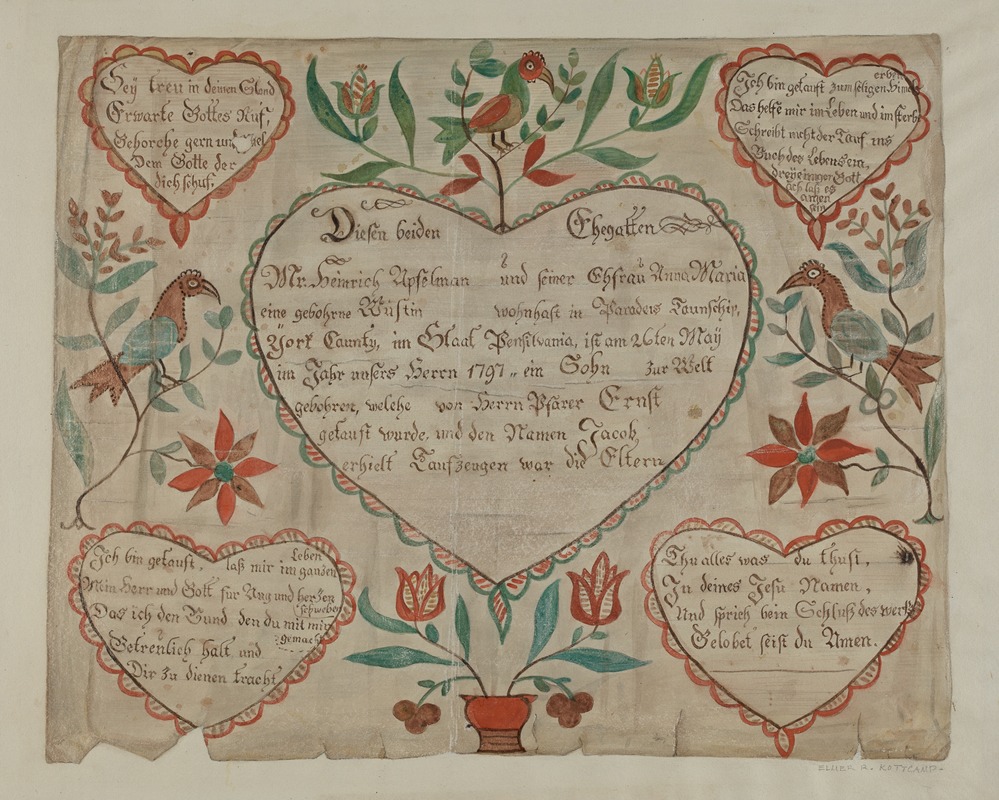 Sey treu in deinen Stand
Erwarte Gottes Ruf,
Gehorche gern und
Dem Gotte der
dich schuf.
erben
Ich bin getauft zum seligen
Das helfe mir im Leben und im sterbe
Schreibt nicht der Tauf ins
Buch des Lebens ein,
dreyeiniger Gott
ach laß es
sein
Diesen beiden Ehegatten
Mr. Heinrich Apfelman und seiner Ehfrau Anna Maria
eine gebohrne Wüstin wohnhaft in Paradeis Taunschip,
York Caunty, im Staat Pensilvania, ist am 26ten May
im Jahr unsers Herrn 1797 ein Sohn zur Welt
gebohren, welche von Herrn Pfarer Ernst
getauft wurde, und den Namen Jacob
erhielt Taufzeugen war die Eltern
Leben
Ich bin getauft, laß mir im ganden
Mein Herr und Gott für Aug und herzen
schweben
Das ich den Bund den du mit mir
gemacht
Getreulich halt und
Dir zu dienen tracht
Thu alles was du thust,
In deines Jesu Namen,
Und sprich bein Schluß des werks
Gelobet seist du Amen.
ELMER R. KOTTCAMP